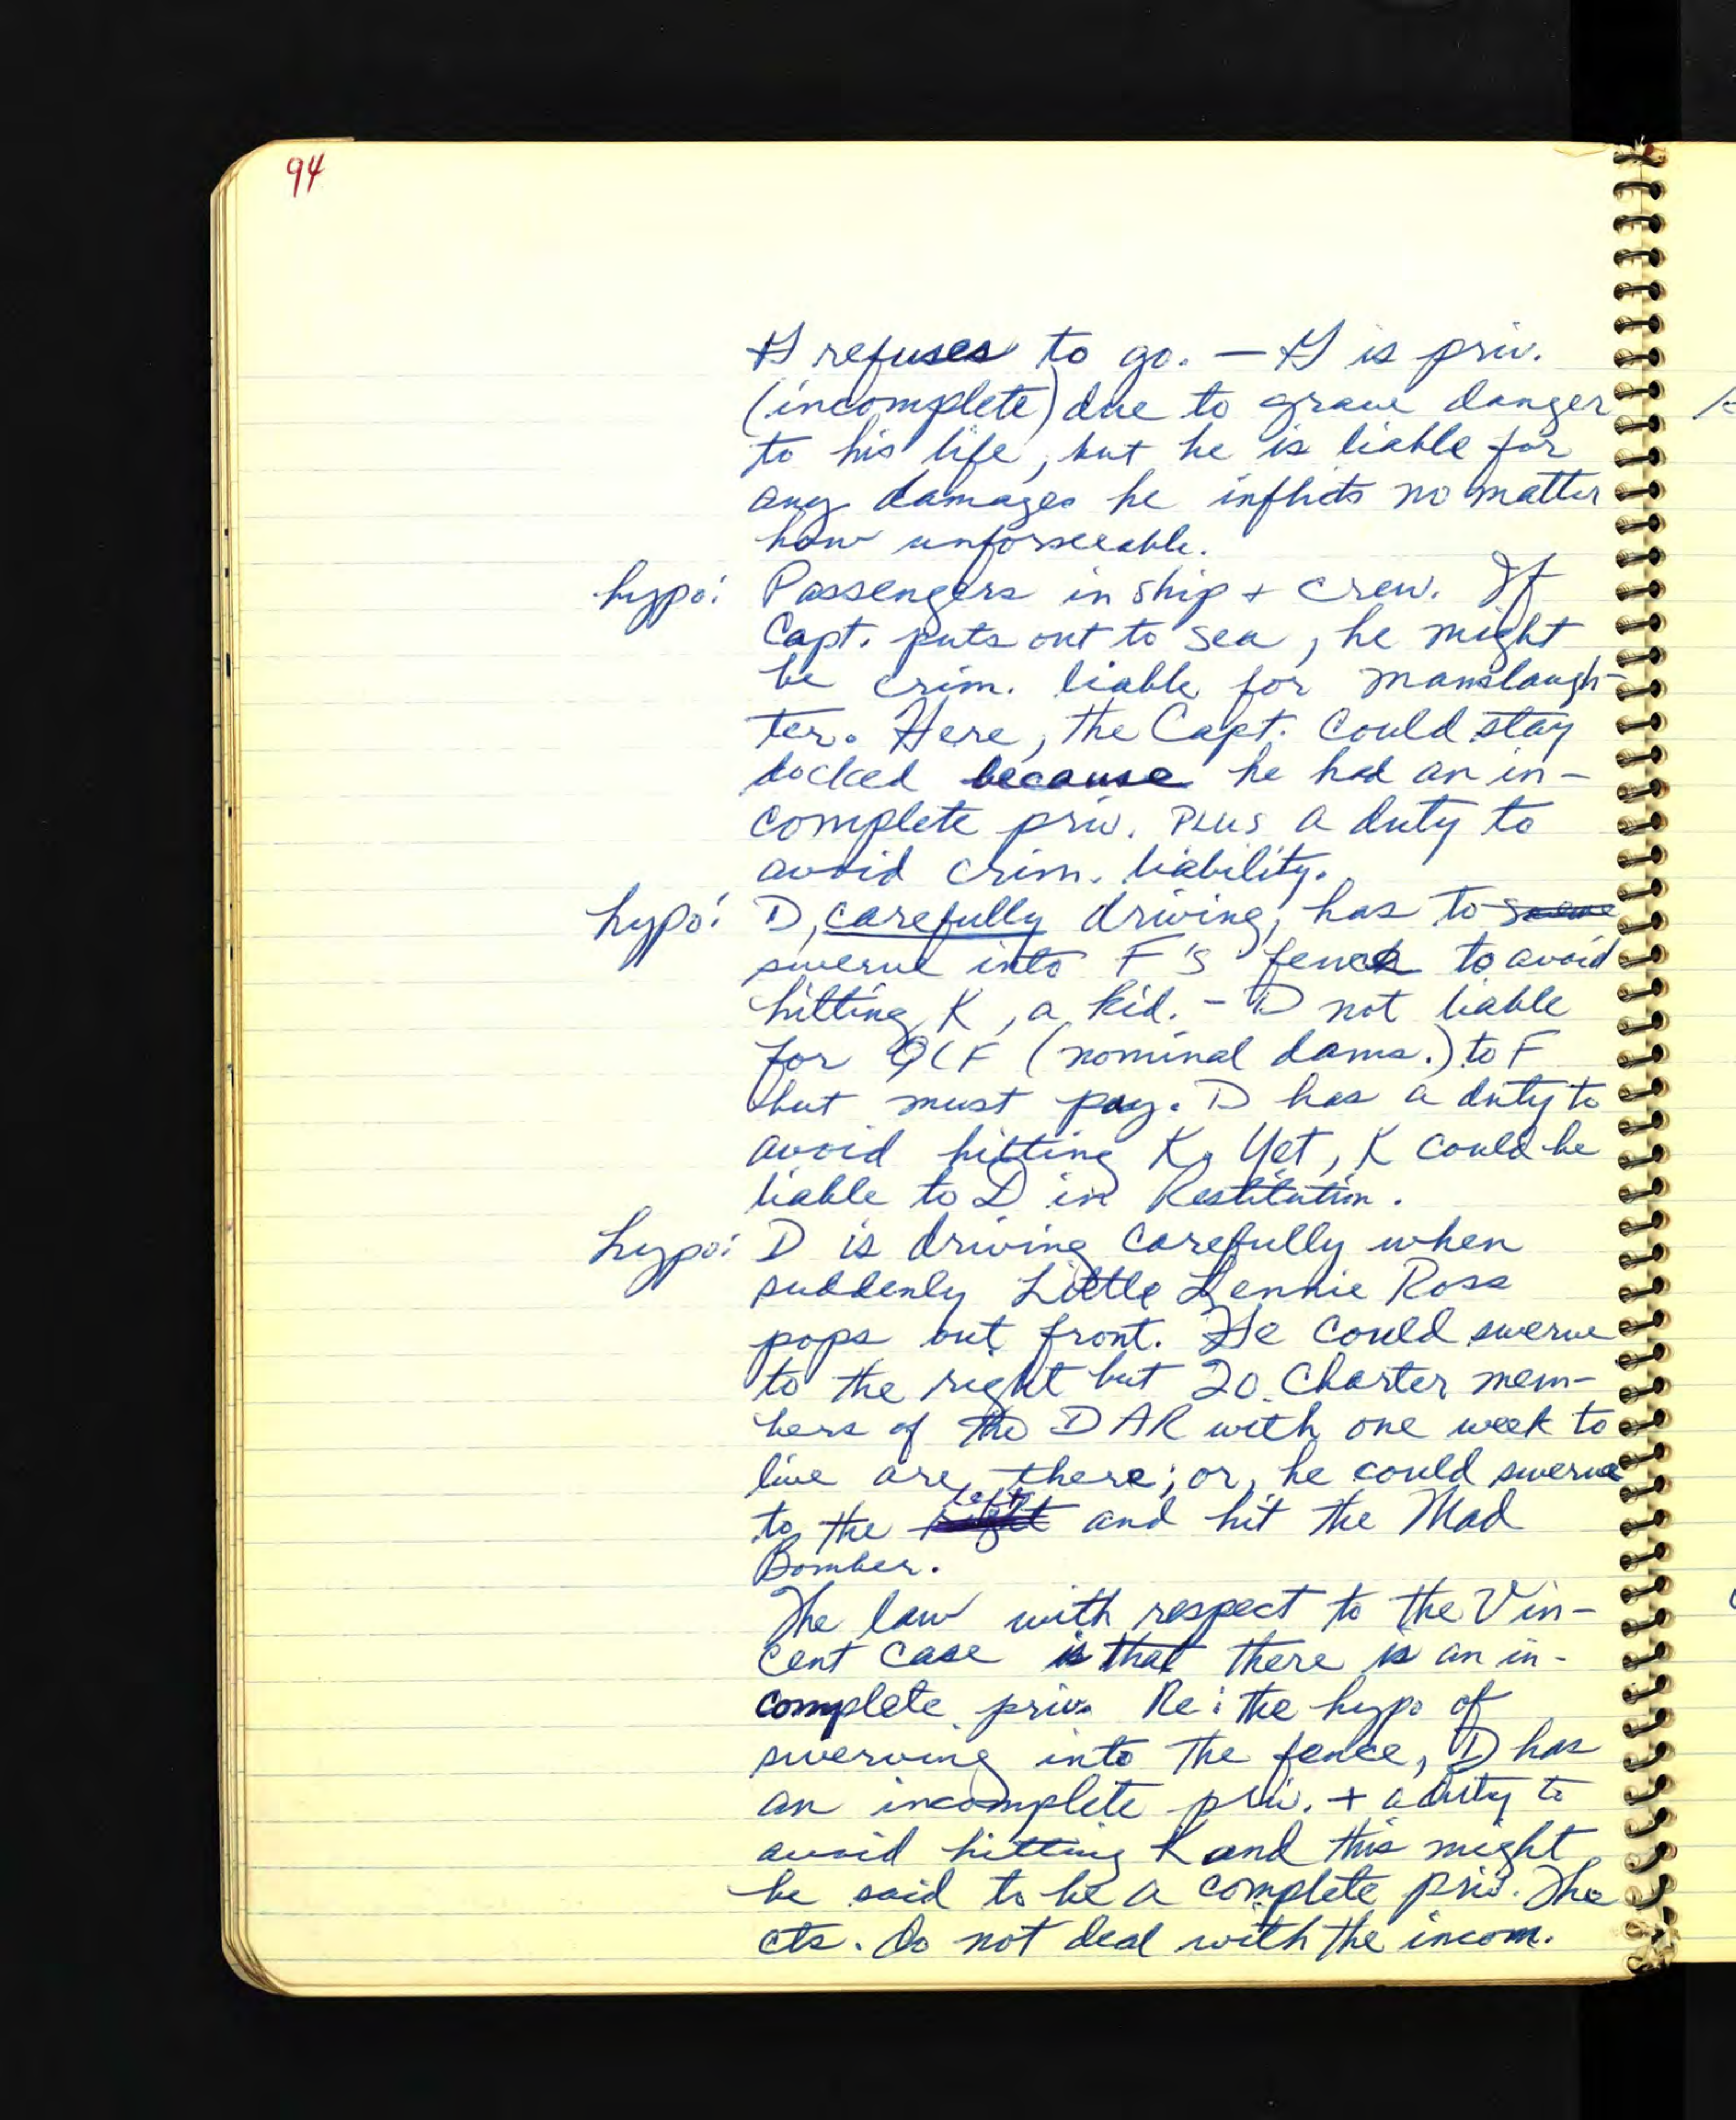 94
H refuses to go. — H is priv.
(incomplete) due to grave danger
to his life, but he is liable for
any damages he inflicts no matter
how unforseeable.
hypo: Passengers in ship + crew. If
Capt. puts out to sea, he might
be crim. liable for manslaugh-
ter. Here, the Capt. could stay
docked because he had an in-
complete priv. PLUS a duty to
avoid crim. liability.
hypo: D, carefully driving, has to
swerve into F's fence to avoid
hitting K, a kid. - D not liable
for QCF (nominal dams.) to F
but must pay. D has a duty to
avoid hitting K. Yet, K could be
liable to D in Restitution.
hypo: D is driving carefully when
suddenly Little Lennie Ross
pops out front. He could swerve
to the right but 20 Charter mem-
bers of the DAR with one week to
live are there; or, he could swerve
to the left and hit the Mad
Bomber.
The law with respect to the Vin-
cent case is that there is an in-
complete priv. Re: the hypo of
swerving into the fence, D has
an incomplete priv. + a duty to
avoid hitting K and this might
be said to be a complete priv. The
cts. do not deal with the incom.